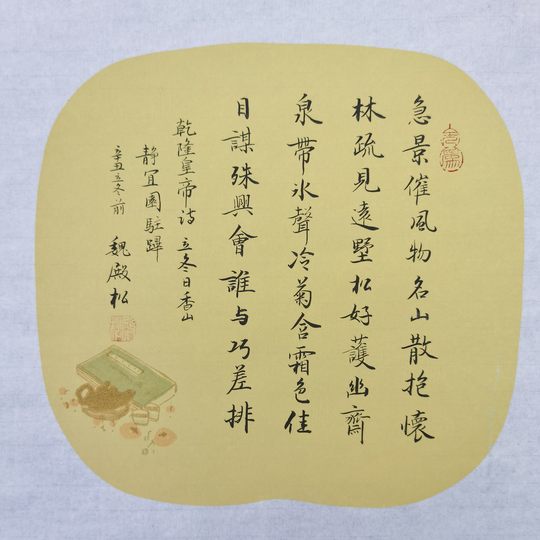 急景催風物名山散抱懷
林疏見遠墅松好護幽齋
泉帶冰聲冷菊含霜色佳
目謀殊興會誰与巧差排
乾隆皇帝詩立冬日香山
静宜園駐蹕
辛丑立冬前
魏殿松